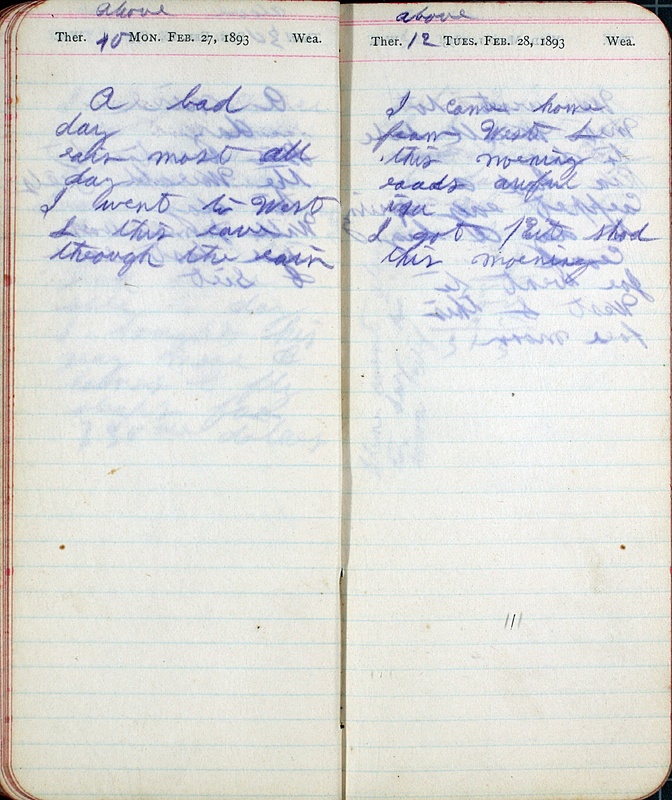 above
Ther. 40 MON. FEB. 27, 1893 Wea.
A bad
day
rain most all
day
I went to West
L this eave
through the rain
above
Ther. 12 TUES. FEB. 28, 1893 Wea.
I came home
from West L
this morning
roads awful
I got shod
this morning